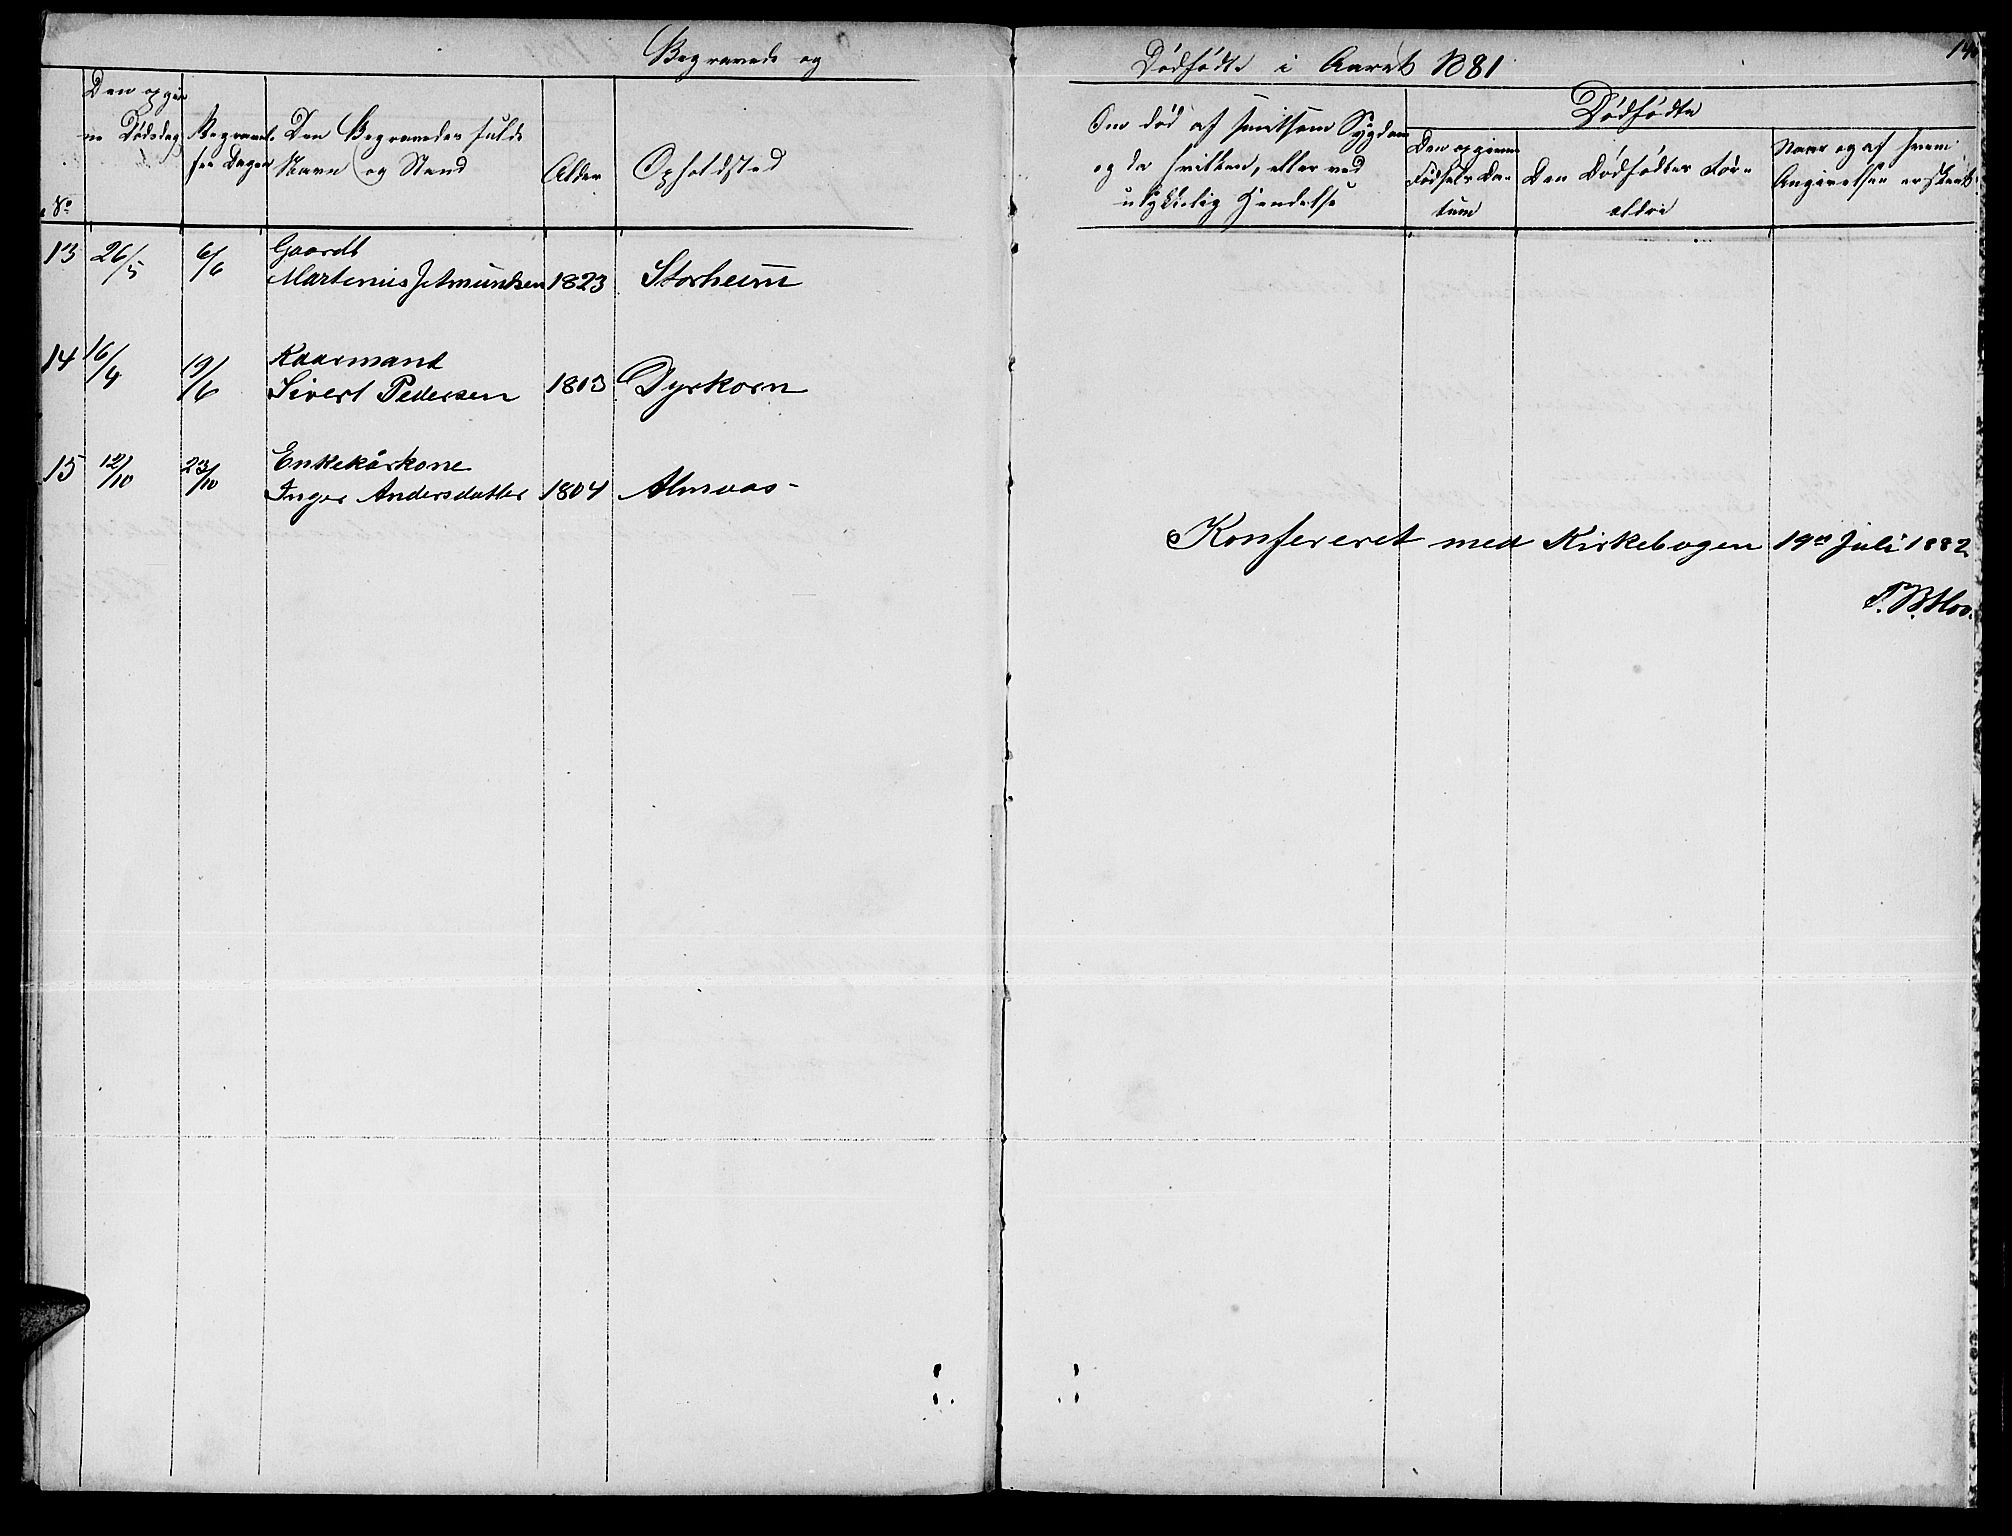 Begravede og
Den opgiv-
ne Dødsdag
Begravel-
ses Dagen
Den Begravedes fulde
Navn og Stand
Alder
Opholdsted
No
13 26/5 6/6 Gaardb
Martinus J Amundsen 1823 Storheim
14 16/4 19/6 Kaarmand
Sivert Pedersen 1803 Dyrkorn
15 12/10 23/10 Enkekårkone
Inger Andersdatter 1804 Almaas-
Dødfødte i Aaret 1881
Om død af smitsom Sygdom
og da hvilken, eller ved
ulykkelig Hændelse
Dødfødte
Den opgivne
Fødsels Da-
tum
Den Dødfødtes For-
ældre
Naar og af hvem
Angivelsen er skeet
Konfereret med Kirkebogen 19de Juli 1882